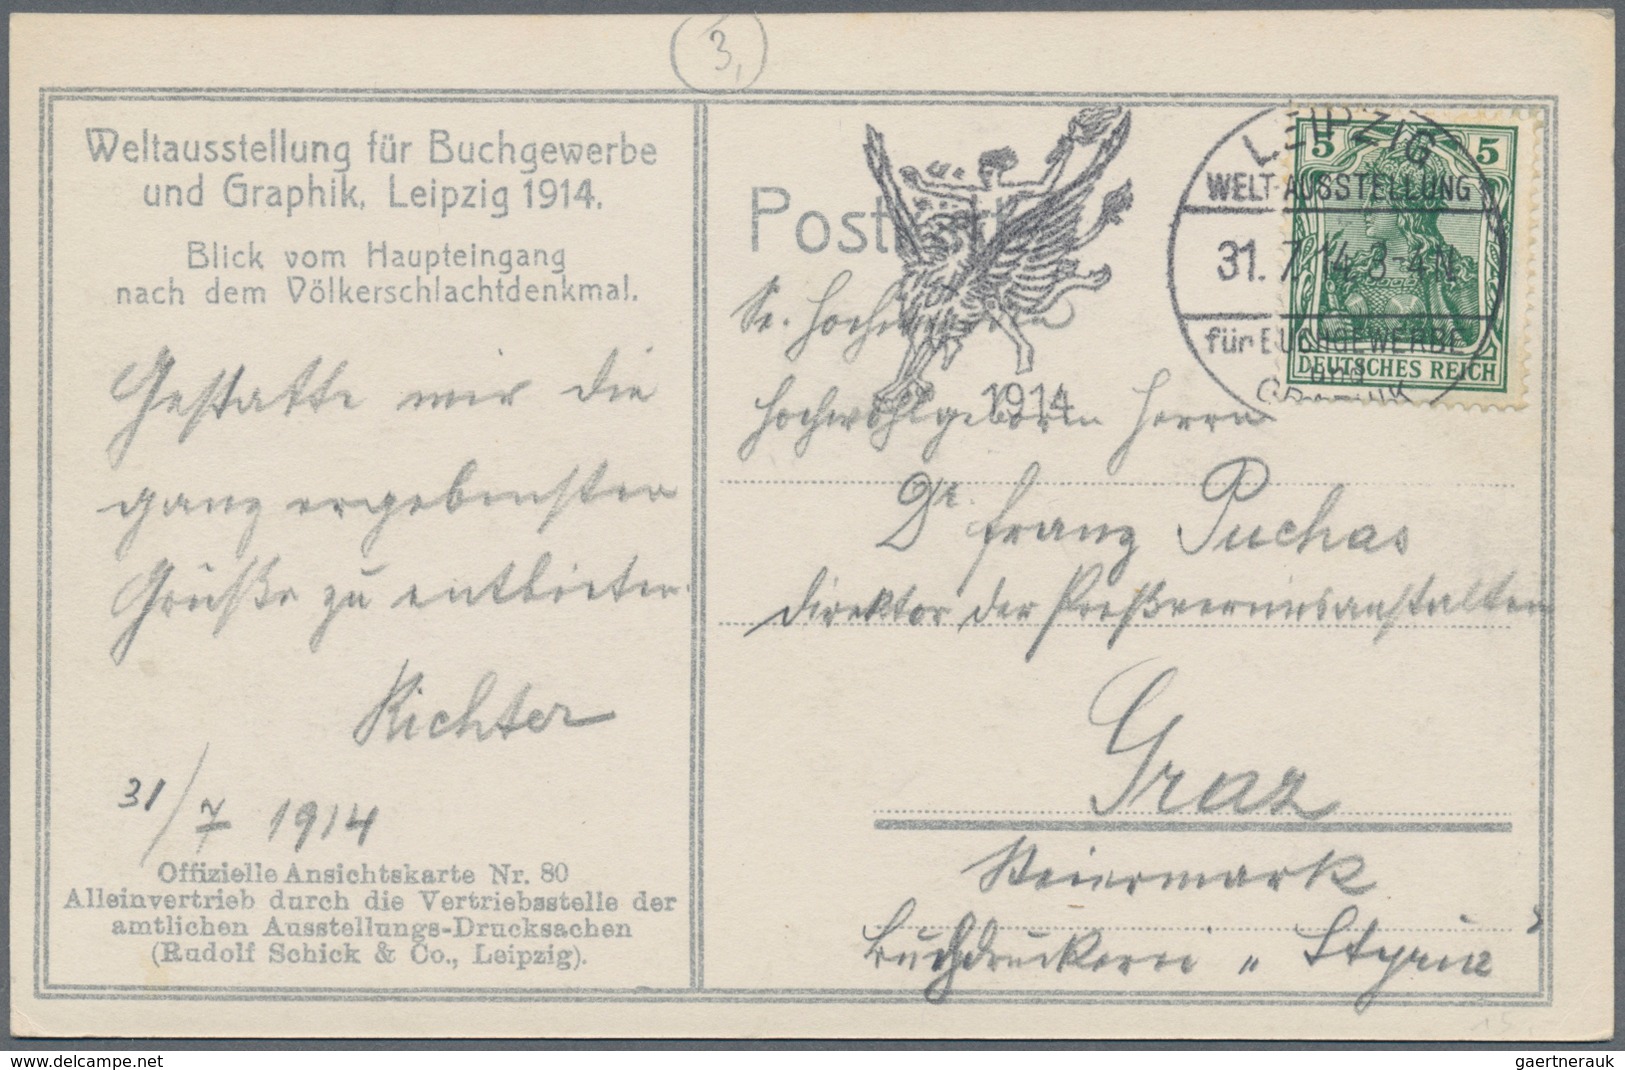 3,
Weltausstellung für Buchgewerbe
und Graphik, Leipzig 1914.
Blick vom Haupteingang
nach dem Völkerschlachtdenkmal.
Gestatte mir die
ganz ergebensten
Grüße zu entbieten.
Richter
31/7 1914
Offizielle Ansichtskarte Nr. 80
Alleinvertrieb durch die Vertriebsstelle der
amtlichen Ausstellungs-Drucksachen
(Rudolf Schick & Co., Leipzig).
1914
LEIPZIG
WELT-AUSSTELLUNG
31. 7. 14. 3-4 N.
für BUCHGEWERBE
und
GRAPHIK
5 5
DEUTSCHES REICH
Sr. Hochwohlgeboren
Hochwohlgeboren Herrn
Dr. Franz Puchas
Direktor der Preßvereinsanstalten
Graz
Steiermark
Buchdruckerei „Styria"
www.ma-shops.com
gaertnerauk